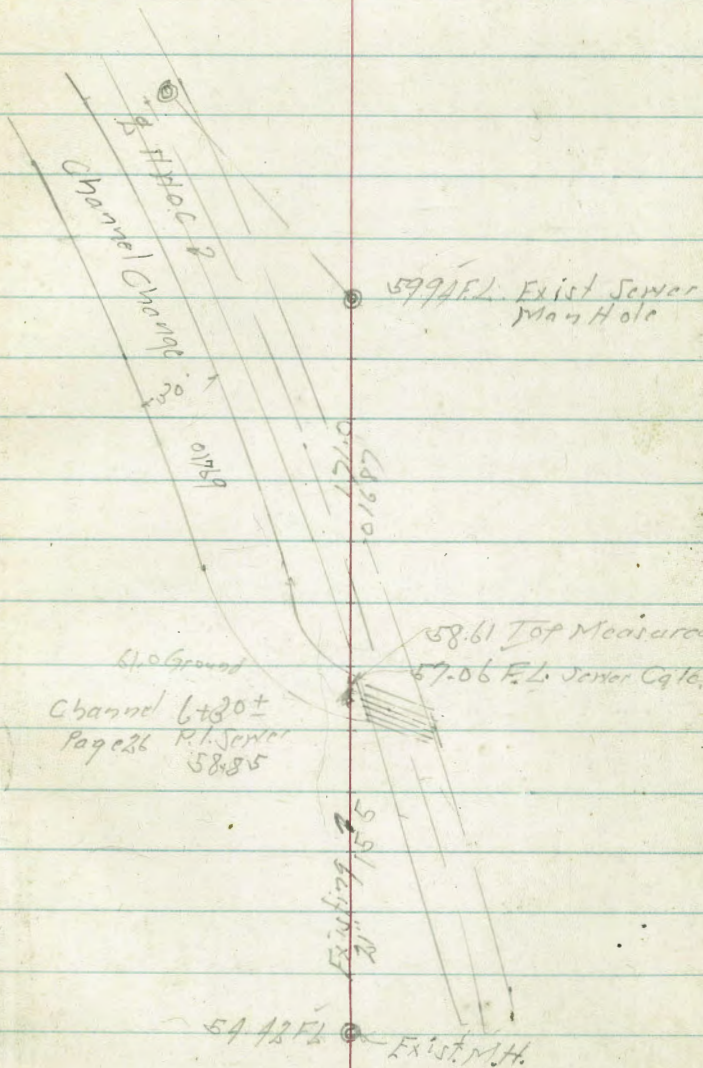 Channel Change
30'
.01769
59.94 F.L. Exist Sewer
Man Hole
171.0
.01687
58.61 Top Measured
57.06 F.L. Sewer Calc.
61.0 Ground
Channel 6+30±
Page 26 P.I. Sewer
58.85
Existing
21"
155
54.42 FL
Exist. M.H.